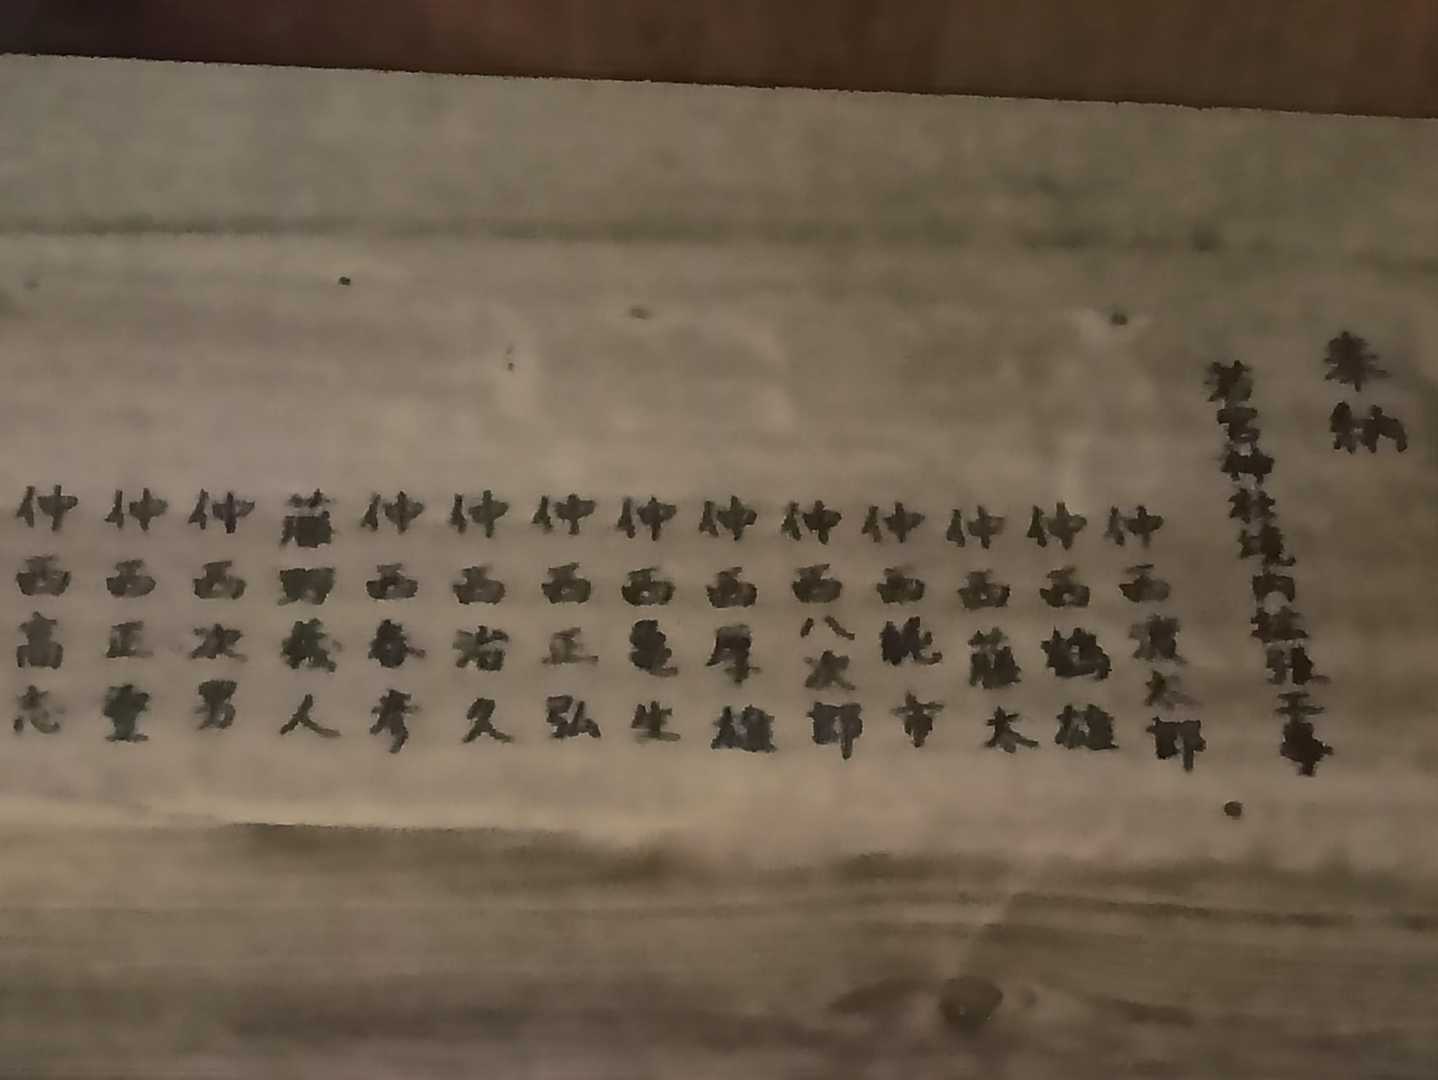 奉納
若宮神社境内拡張工事
仲西 太郎
仲西鶴雄
仲西藤木
仲西 市
仲西八次郎
仲西厚雄
仲西亀生
仲西正弘
仲西治久
仲西春彦
野 人
仲西次男
仲西正豊
仲西高志